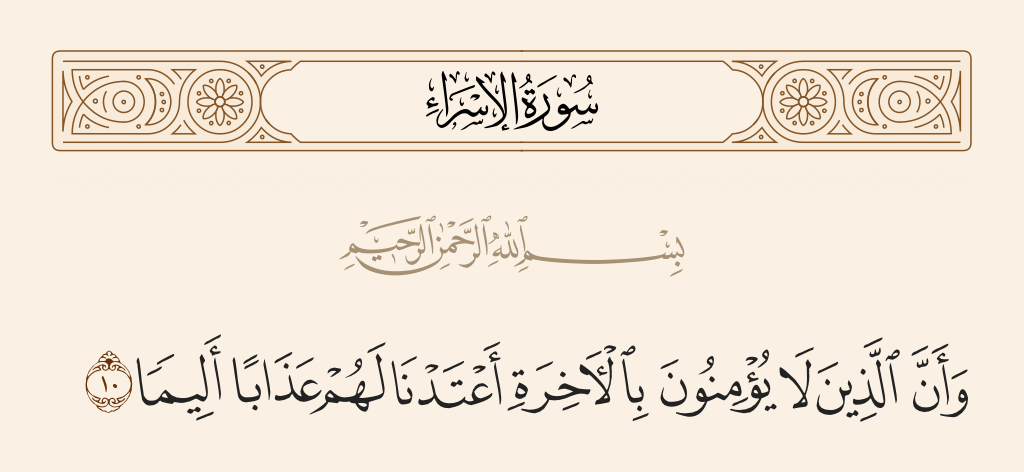 سُورَةُ الإِسْرَاءِ
بِسْمِ ٱللَّهِ ٱلرَّحْمَٰنِ ٱلرَّحِيمِ
وَأَنَّ ٱلَّذِينَ لَا يُؤْمِنُونَ بِٱلْأَخِرَةِ أَعْتَدْنَا لَهُمْ عَذَابًا أَلِيمًا ١٠